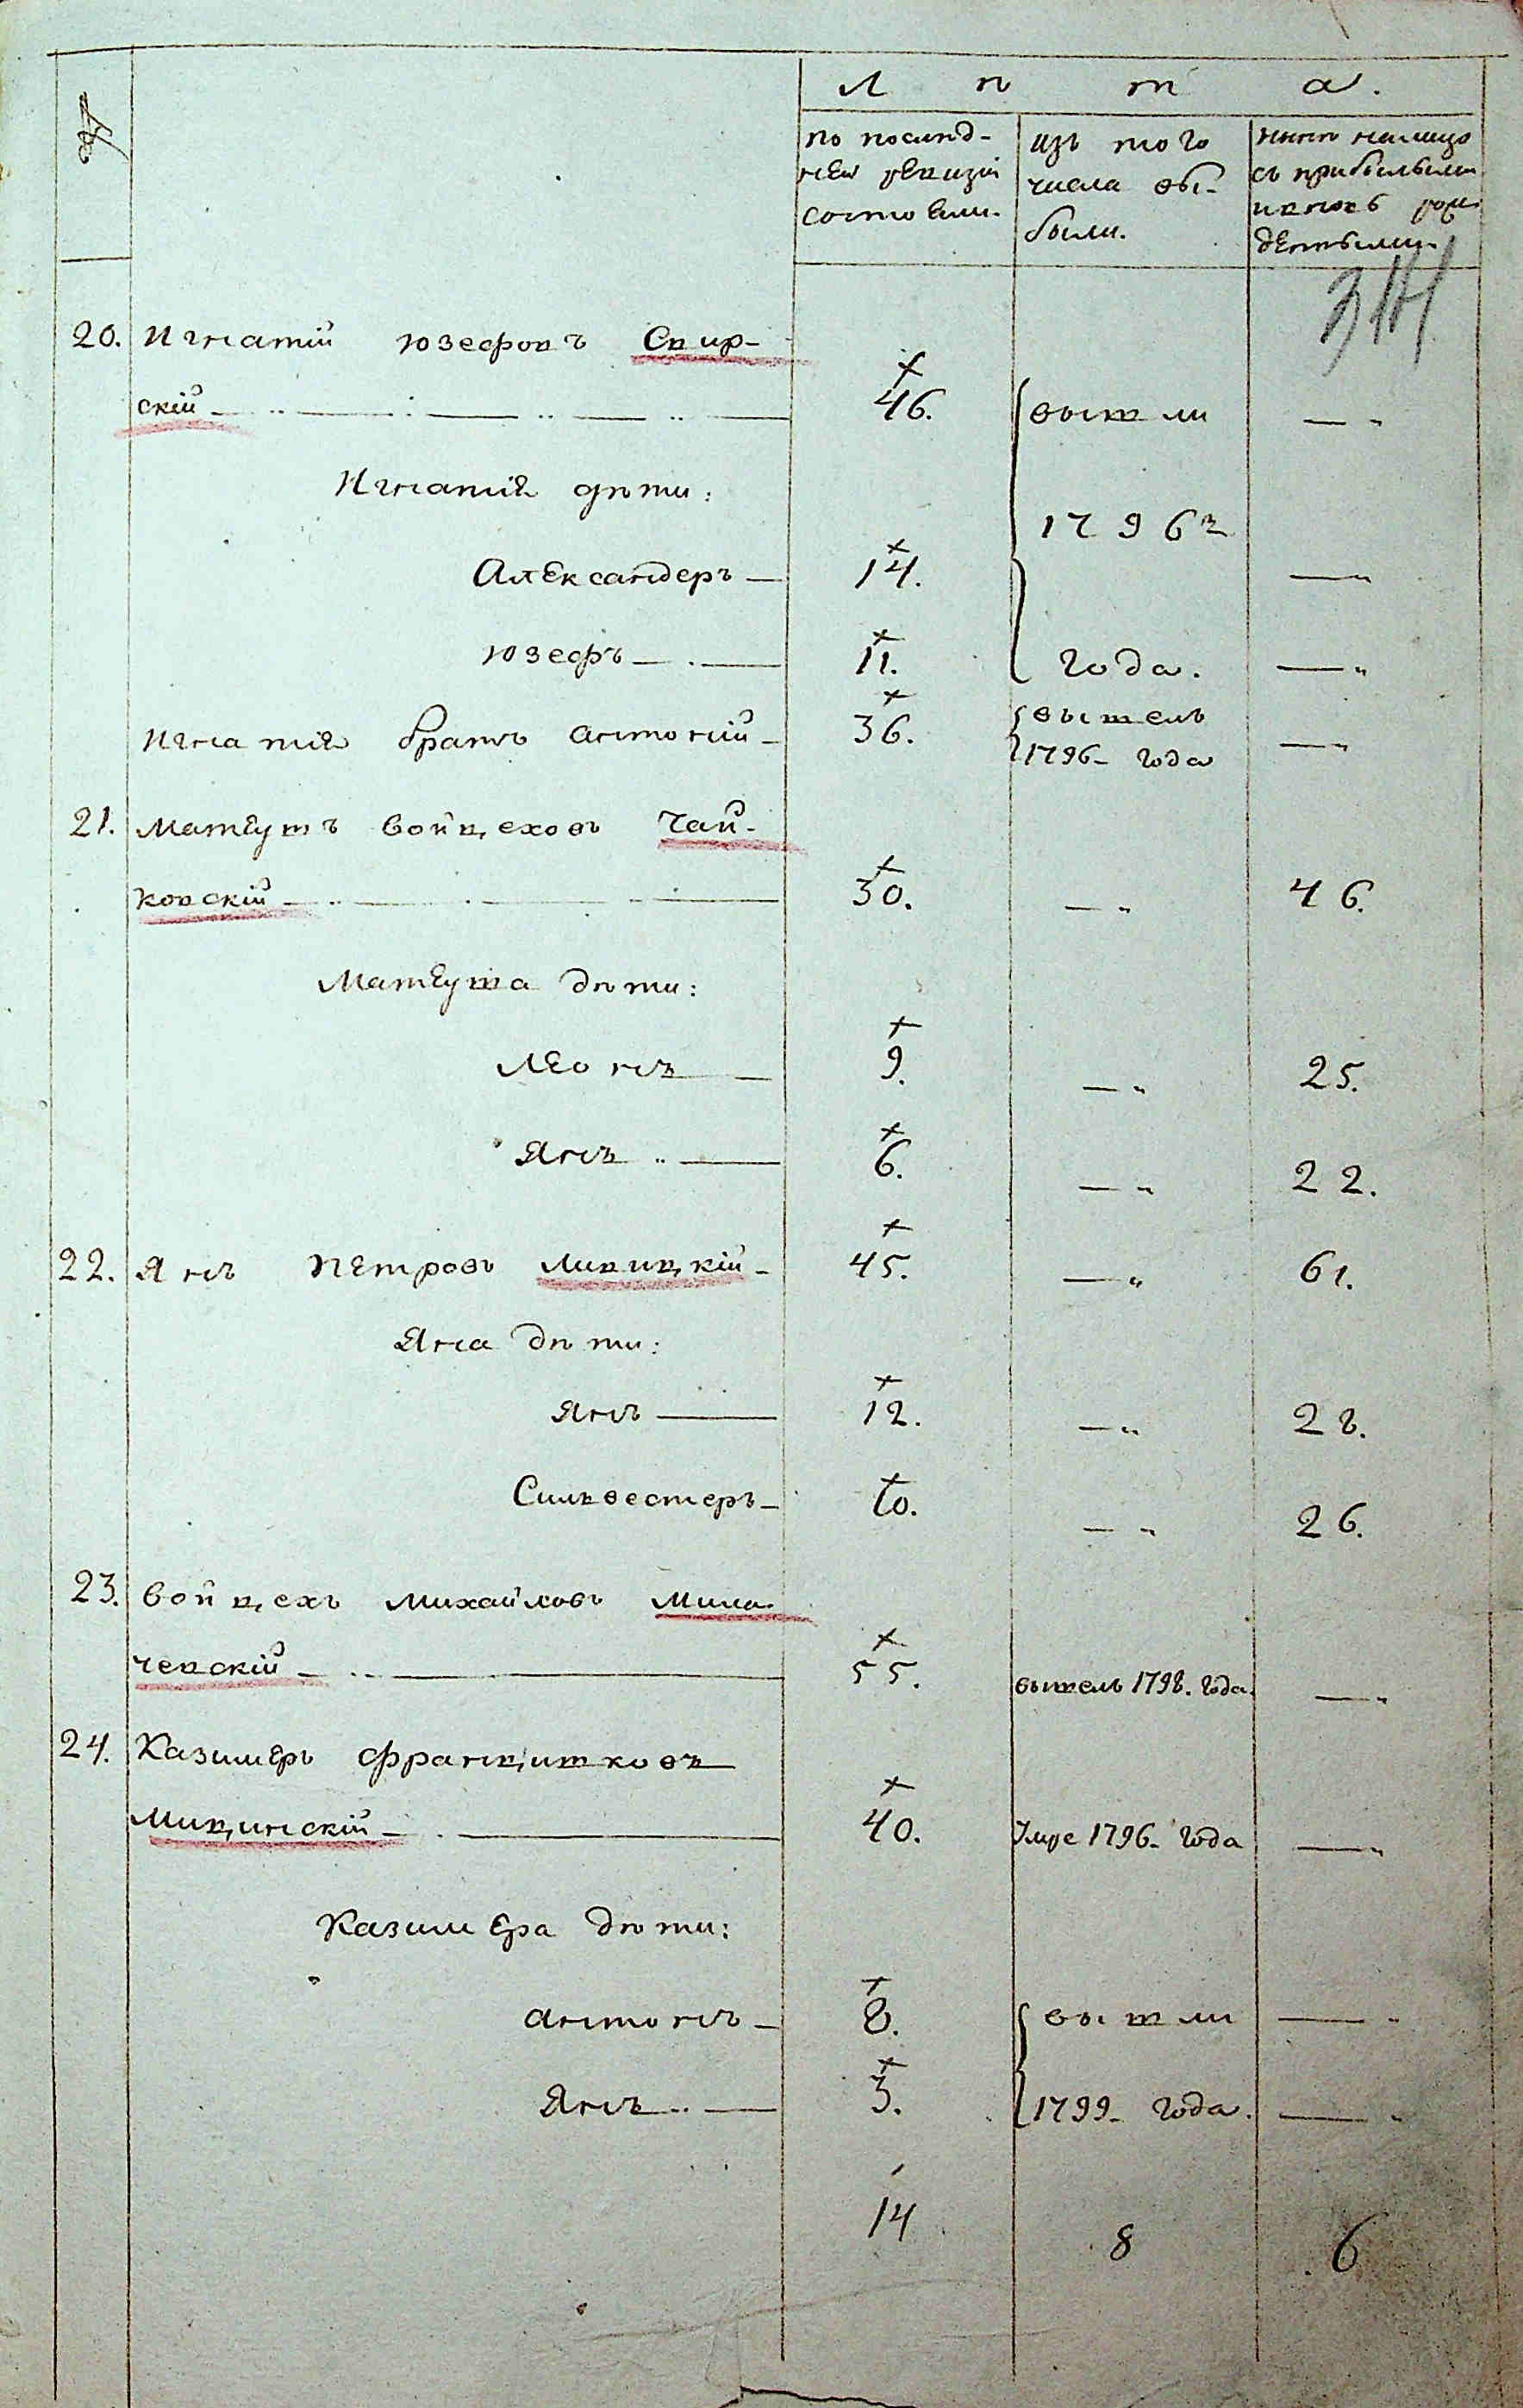 №
Лѣта.
по послѣд-
ней ревизіи
состояли.
изъ того
числа вы-
были.
нынѣ налицо
съ прибылыми
и вновь рож
денными.
20. Игнатій Юзефовъ Свир-
скій 46. вышли — "
Игнатія дѣти:
1796г
Александеръ — 14. — "
Юзефъ — 11. года. — "
Игнатія братъ Антоній — 36. вышелъ 1796 — года — "
21. Матеушъ Войцеховъ Чай-
ковскій — 30. — " 46.
Матеуша дѣти:
Леонъ — 9. — " 25.
Янъ — 6. — " 22.
22. Янъ Петровъ Ливицкій — 45. — " 61.
Яна дѣти:
Янъ — 12. — " 28.
Сильвестеръ — 10. — " 26.
23. Войцехъ Михайловъ Мила-
чевскій — 55. вышелъ 1798. года. — "
24. Казимеръ Францишковъ
Мицинскій — 40. Умре 1796 — года — "
Казимера дѣти:
Антонъ — 8. вышли — "
Янъ — 3. 1799 — года. — "
14 8 6